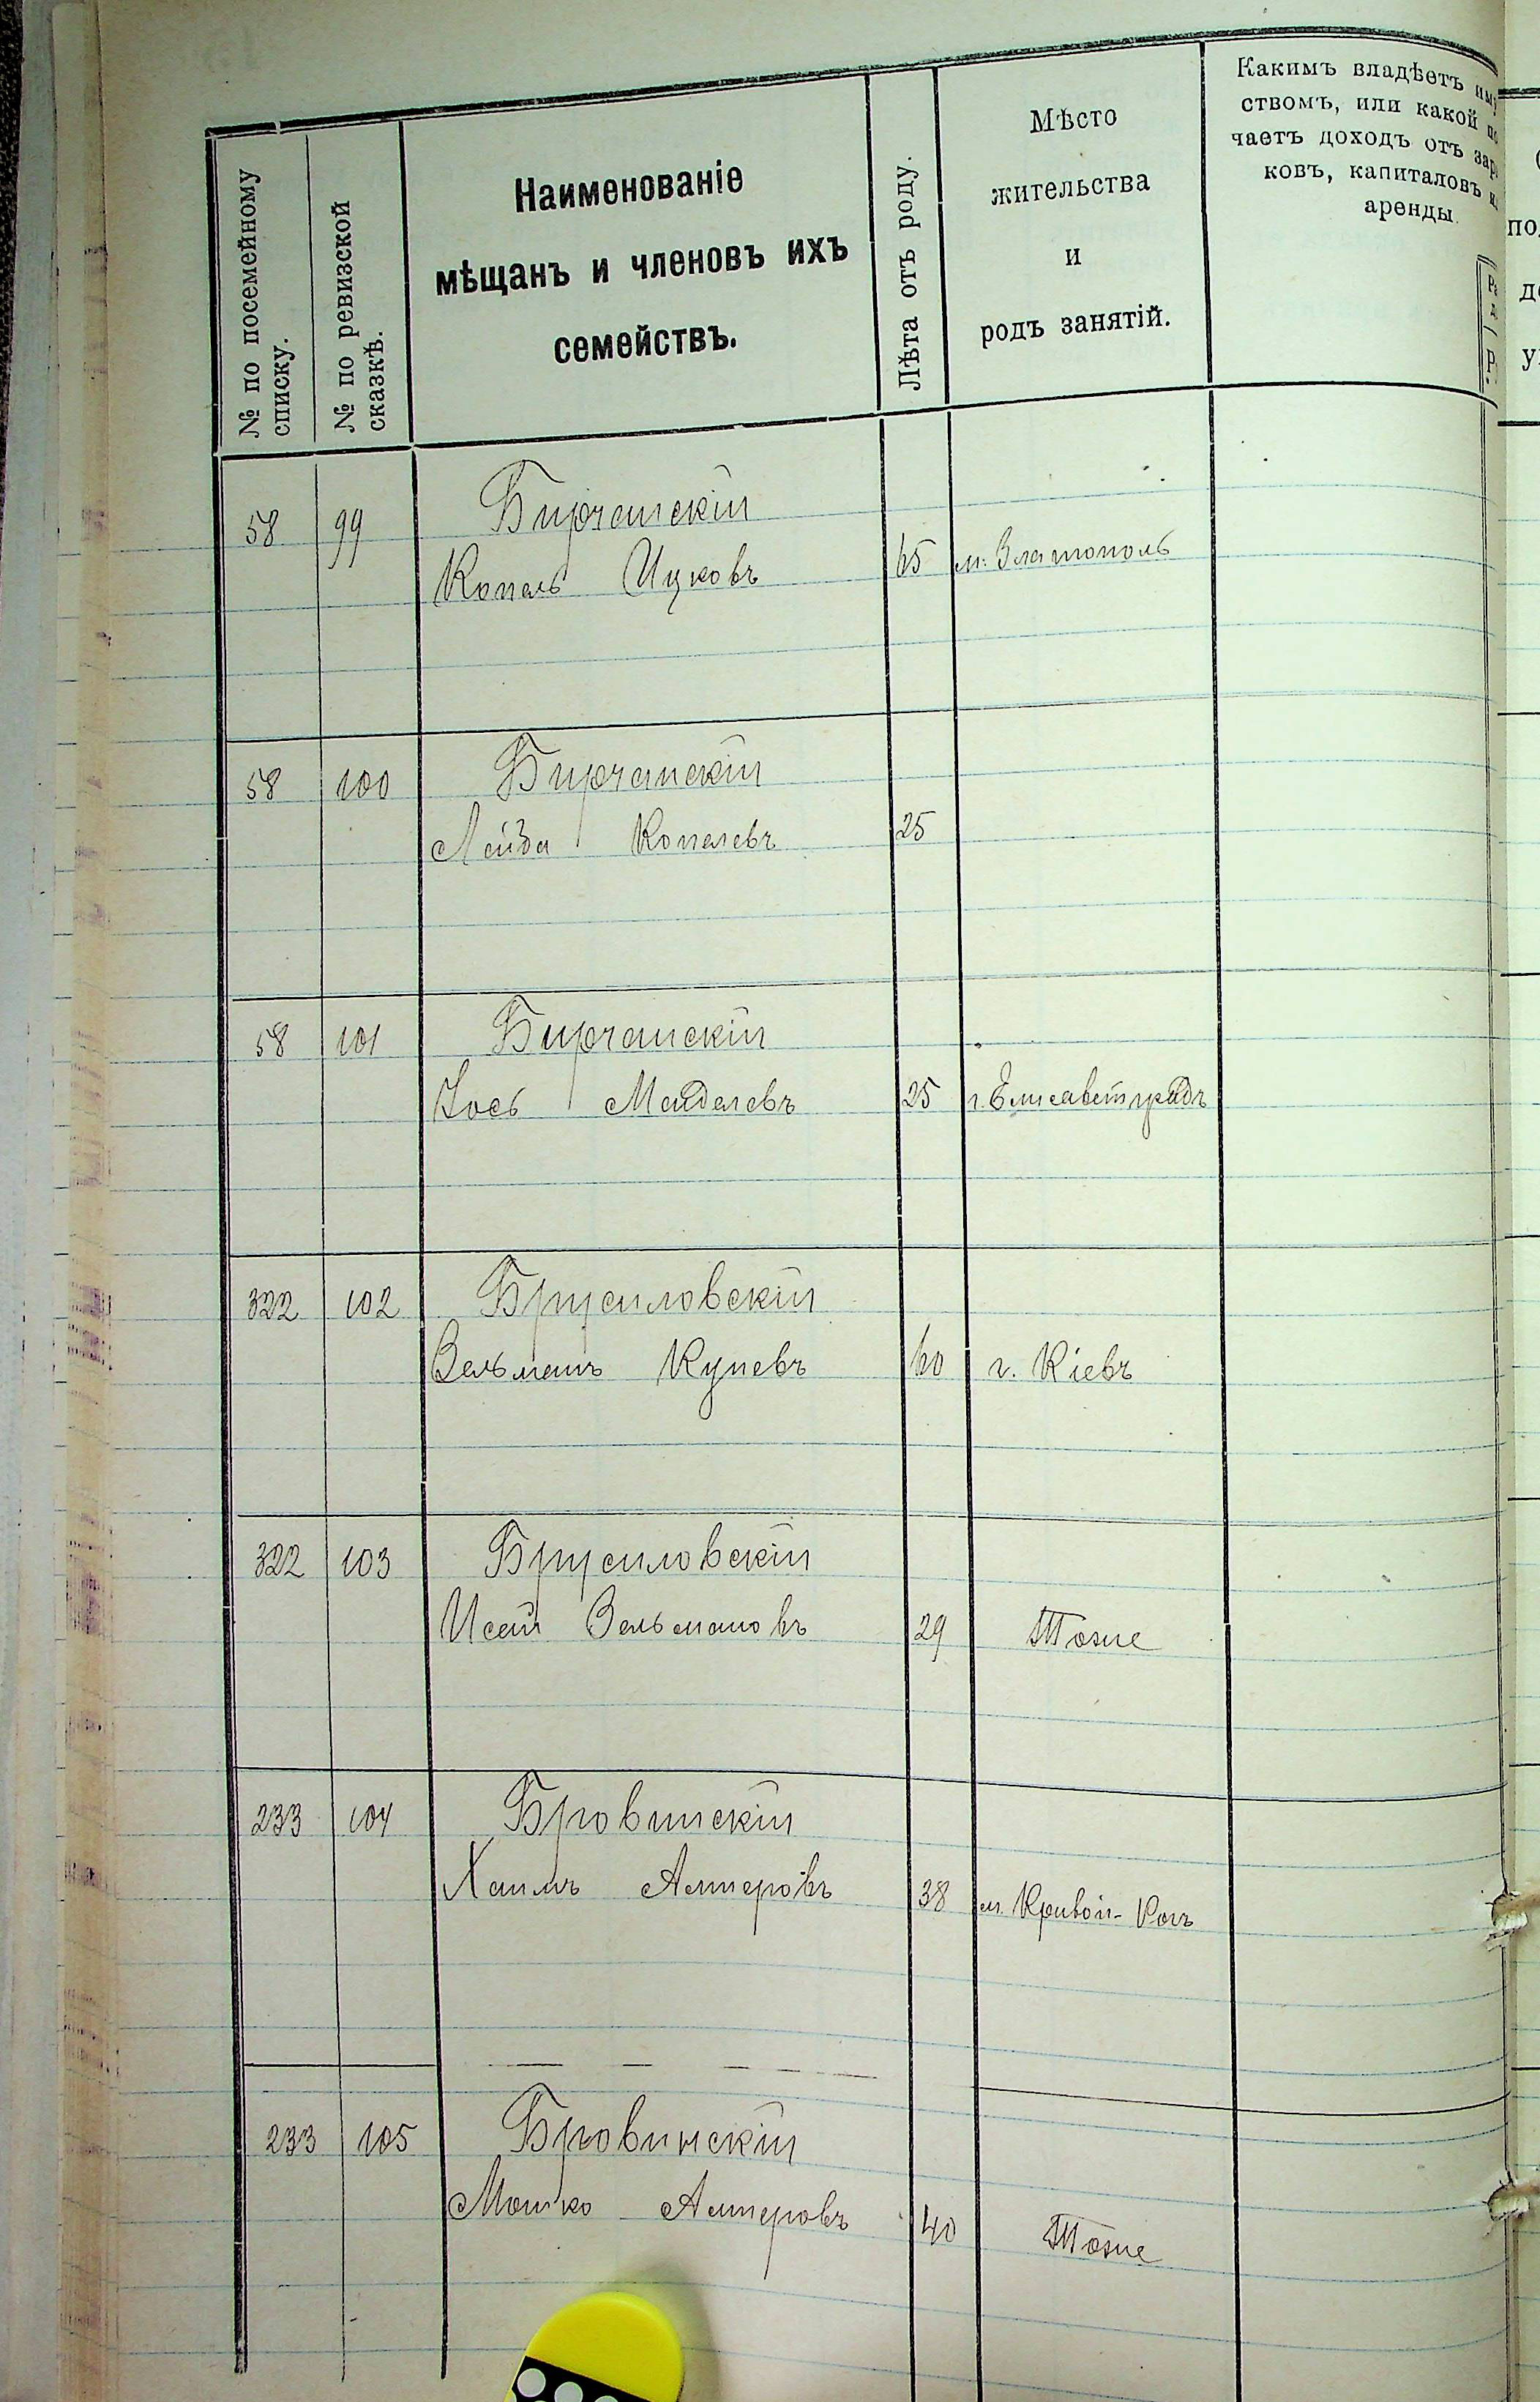 № по посемейному
списку.
№ по ревизской
сказкѣ.
Наименованіе
мѣщанъ и членовъ ихъ
семействъ.
Лѣта отъ роду.
Мѣсто
жительства
и
родъ занятій.
Какимъ владѣетъ
ствомъ, или какой
чаетъ доходъ отъ
ковъ, капиталовъ
аренды
58 99 Бирчанскій
Копель Ицковъ 65 м. Златополь
58 100 Бирчанскій
Лейба Копелевъ 25
58 101 Бирчанскій
Іось Менделевъ 25 г. Елисаветградъ
322 102 Брусиловскій
Зельманъ Куневъ 60 г. Кіевъ
322 103 Брусиловскій
Исай Зельмановъ 29 Тоже
233 104 Бровинскій
Хаимъ Алтеровъ 38 м. Кривой-Рогъ
233 105 Бровинскій
Мошко Алтеровъ 40 Тоже